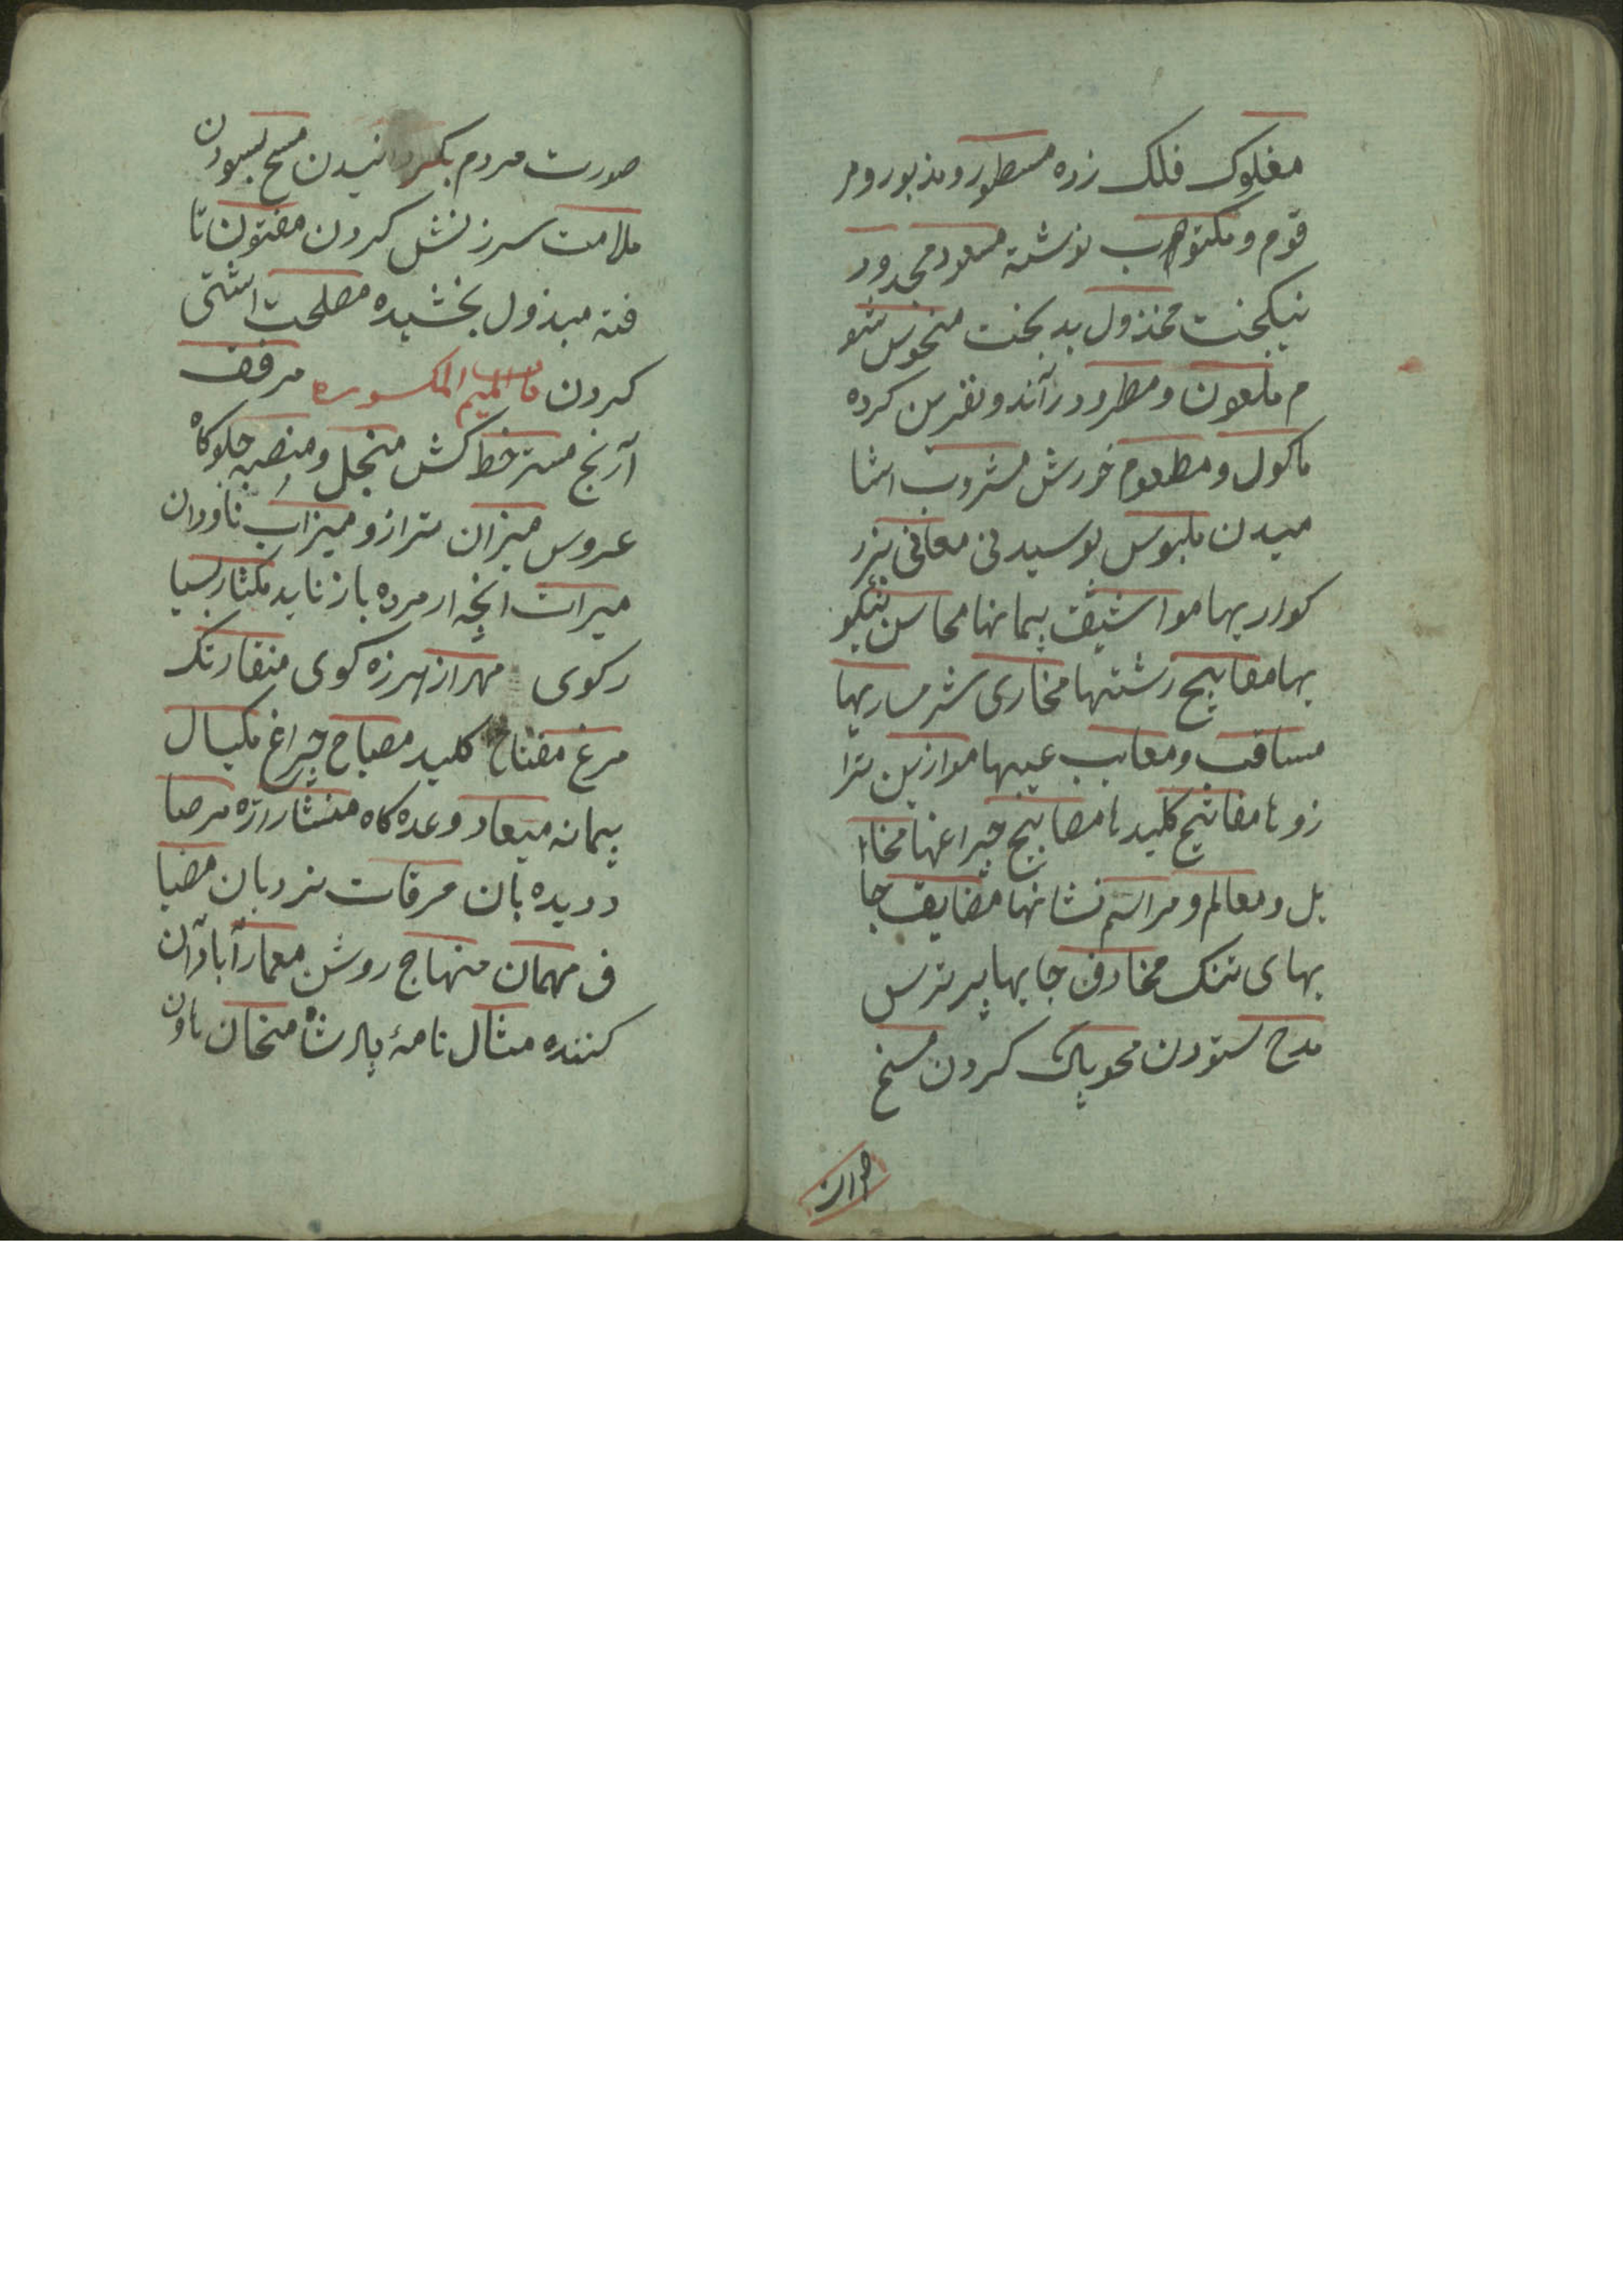 مفلوک فلک زده مسطور و مذبور و مر
قوم و مکتوب نوشته مسعود مجدود
نیکبخت مخذول بدبخت منحوس شو
م ملعون و مطرود رانده و نفرین کرده
ماکول و مطعوم خورش مشروب اشا
میدن ملبوس پوسیدنی معانی بزر
کواریها مواثیق پیمانها محاسن نیکو
بها مقابیح زشتها مخازی شرمساریها
مساقب و معایب عیبها موازین ترا
زوها مفاتیح کلیدها مصابیح چراغها مخا
یل و معالم و مراسم نشانها مضایق جا
بهای تنک مخاوف جایها پر ترس
مدح ستودن محو پاک کردن مسخ
صورت مردم بکردانیدن مسح بسودن
ملامت سرزنش کردن مفتون تا
فته مبذول بخشیده مصلحت اشتی
کردن المیم المکسوره مرفق
آرنج مسترخط کش منجل و منصبه جلوکاه
عروس میزان ترازو میزاب ناودان
میراث انچه از مرده باز ناید مکثار بسیا
رکوی مهراز هرزه کوی منقار تک
مرغ مفتاح کلید مصباح چراغ مکیال
پیمانه میعاد وعده کاه منشار اره مرصا
د دیده بان مرقات نردبان مضیا
ف مهمان منهاج روشن معمار آبادان
کننده مثال نامهٔ پادشاه منحان هاون